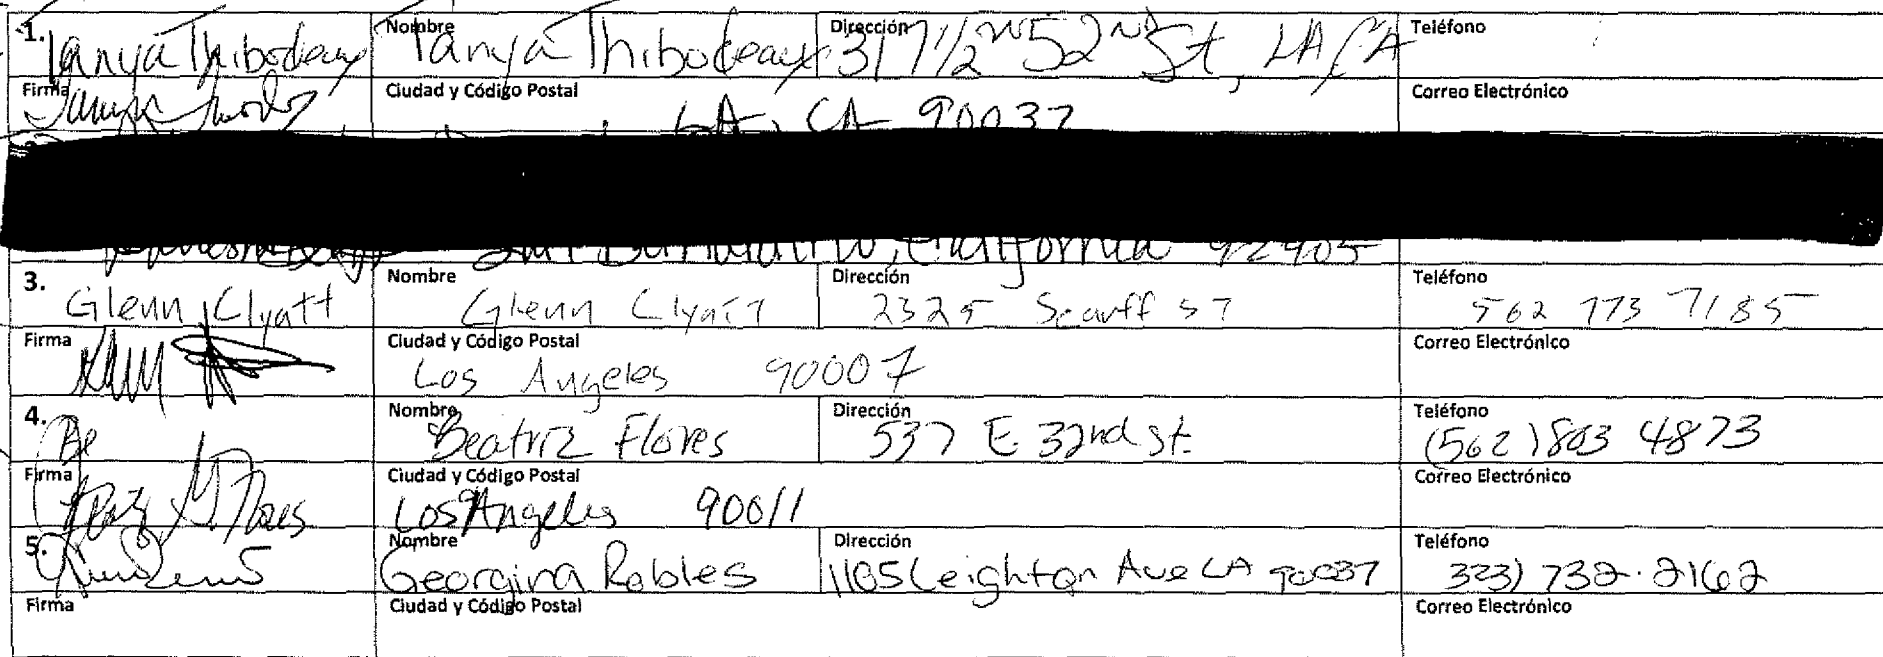 1. Tanya Thibodeaux Nombre Tanya Thibodeaux Dirección 317 1/2 W 52nd St, LA, CA Teléfono
Firma Ciudad y Código Postal LA, CA 90037 Correo Electrónico
San Bernardino, California
3. Glenn Clyatt Nombre Glenn Clyatt Dirección 2325 Scarff ST Teléfono 562 773 7185
Firma Ciudad y Código Postal Los Angeles 90007 Correo Electrónico
4. Be Nombre Beatriz Flores Dirección 537 E 32nd St. Teléfono (562) 803 4873
Firma Ciudad y Código Postal Los Angeles 90011 Correo Electrónico
5. Nombre Georgina Robles Dirección 1105 Leighton Ave LA 90037 Teléfono 323) 732-2162
Firma Ciudad y Código Postal Correo Electrónico